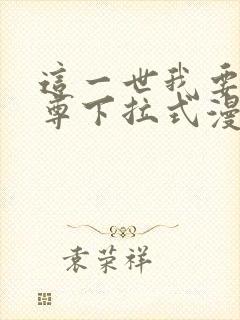 這一世我要
尊下拉式漫
袁荣祥